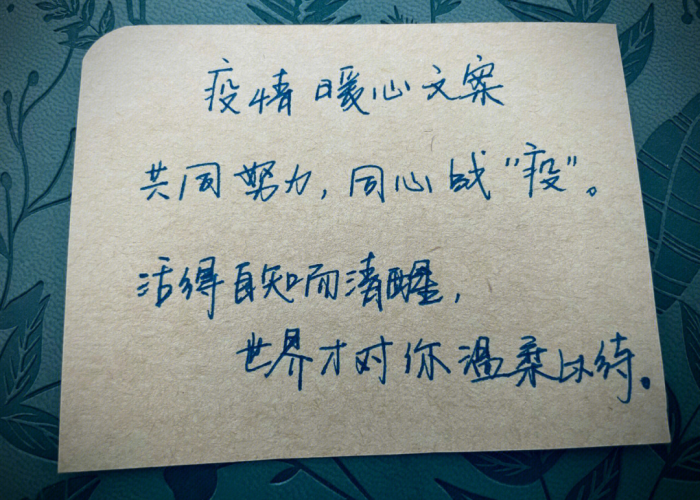 疫情暖心文案
共同努力，同心战“疫”。
活得自知而清醒，
世界才对你温柔以待。